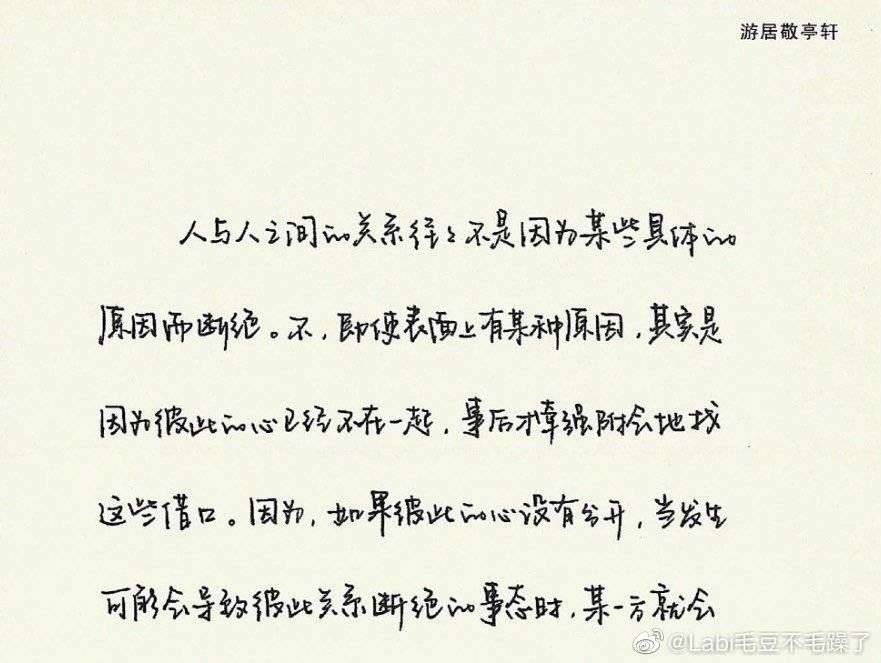 游居敬亭轩
人与人之间的关系往々不是因为某些具体的
原因而断绝。不，即使表面上有某种原因，其实是
因为彼此的心已经不在一起，事后才牵强附会地找
这些借口。因为，如果彼此的心没有分开，当发生
可能会导致彼此关系断绝的事态时，某一方就会
@Labi毛豆不毛躁了